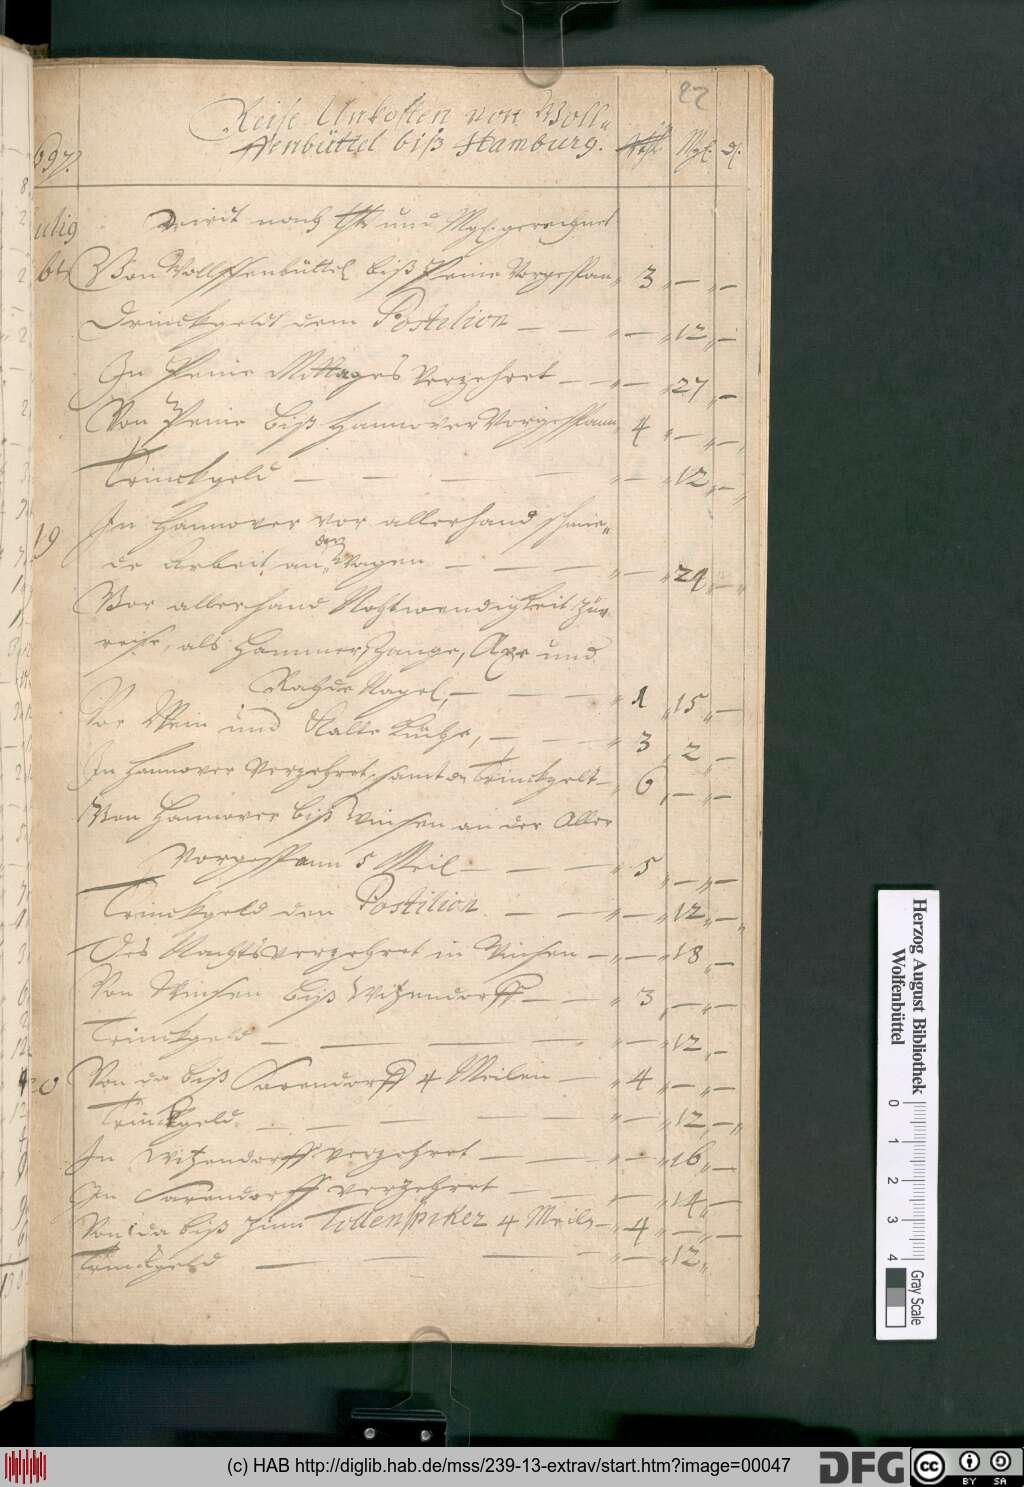 22
Reise Unkosten von Wolf„
ffenbüttel biß Hamburg. Rthlr Mgl. d.
697.
Wirdt nach thlr und Mgl. gerechnet
Von Wolffenbüttel biß Peine Vorgespan „ 3 „ — „ —
Drinckgeldt dem Postilion — — „ — „ 12 „ —
In Peine Mittages Verzehret — — „ — „ 27 „ —
Von Peine biß Hannover Vorgespann „ 4 „ — „ —
Trinckgeld — — — — „ — „ 12 „ —
19 In Hannover vor allerhand schmie„
de Arbeit an den Wagen — — — „ — „ 24 „ —
Vor allerhand Nohtwendigkeit zur
reise, als Hammer, Zange, Axe und
Nagel, — — — „ 1 „ 15 „ —
Vor Wein und Kalte Küche, — — „ 3 „ 2 „ —
In Hannover Verzehret, samt Trinckgelt — „ 6 „ — „ —
Von Hannover biß Winsen an der Aller
Vorgespann 5 Meil — — — „ 5 „ — „ —
Trinckgeld den Postilion — — „ — „ 12 „ —
Des Nachts verzehret in Winsen — „ — „ 18 „ —
Von Winsen biß Witzendorff — — „ 3 „ — „ —
Trinckgeld — — — — „ — „ 12 „ —
Von da biß Sarendorff 4 Meilen — „ 4 „ — „ —
Trinckgeld. — — — — „ — „ 12 „ —
In Witzendorff verzehret — — „ — „ 16 „ —
In Sarendorff verzehret — — „ — „ 14 „ —
Von da biß zum Tollenspiker 4 Meile — „ 4 „ — „ —
Trinckgeld — — — „ — „ 12 „
Herzog August Bibliothek
Wolfenbüttel
0 1 2 3 4
Gray Scale
(c) HAB http://diglib.hab.de/mss/239-13-extrav/start.htm?image=00047
DFG
cc BY SA